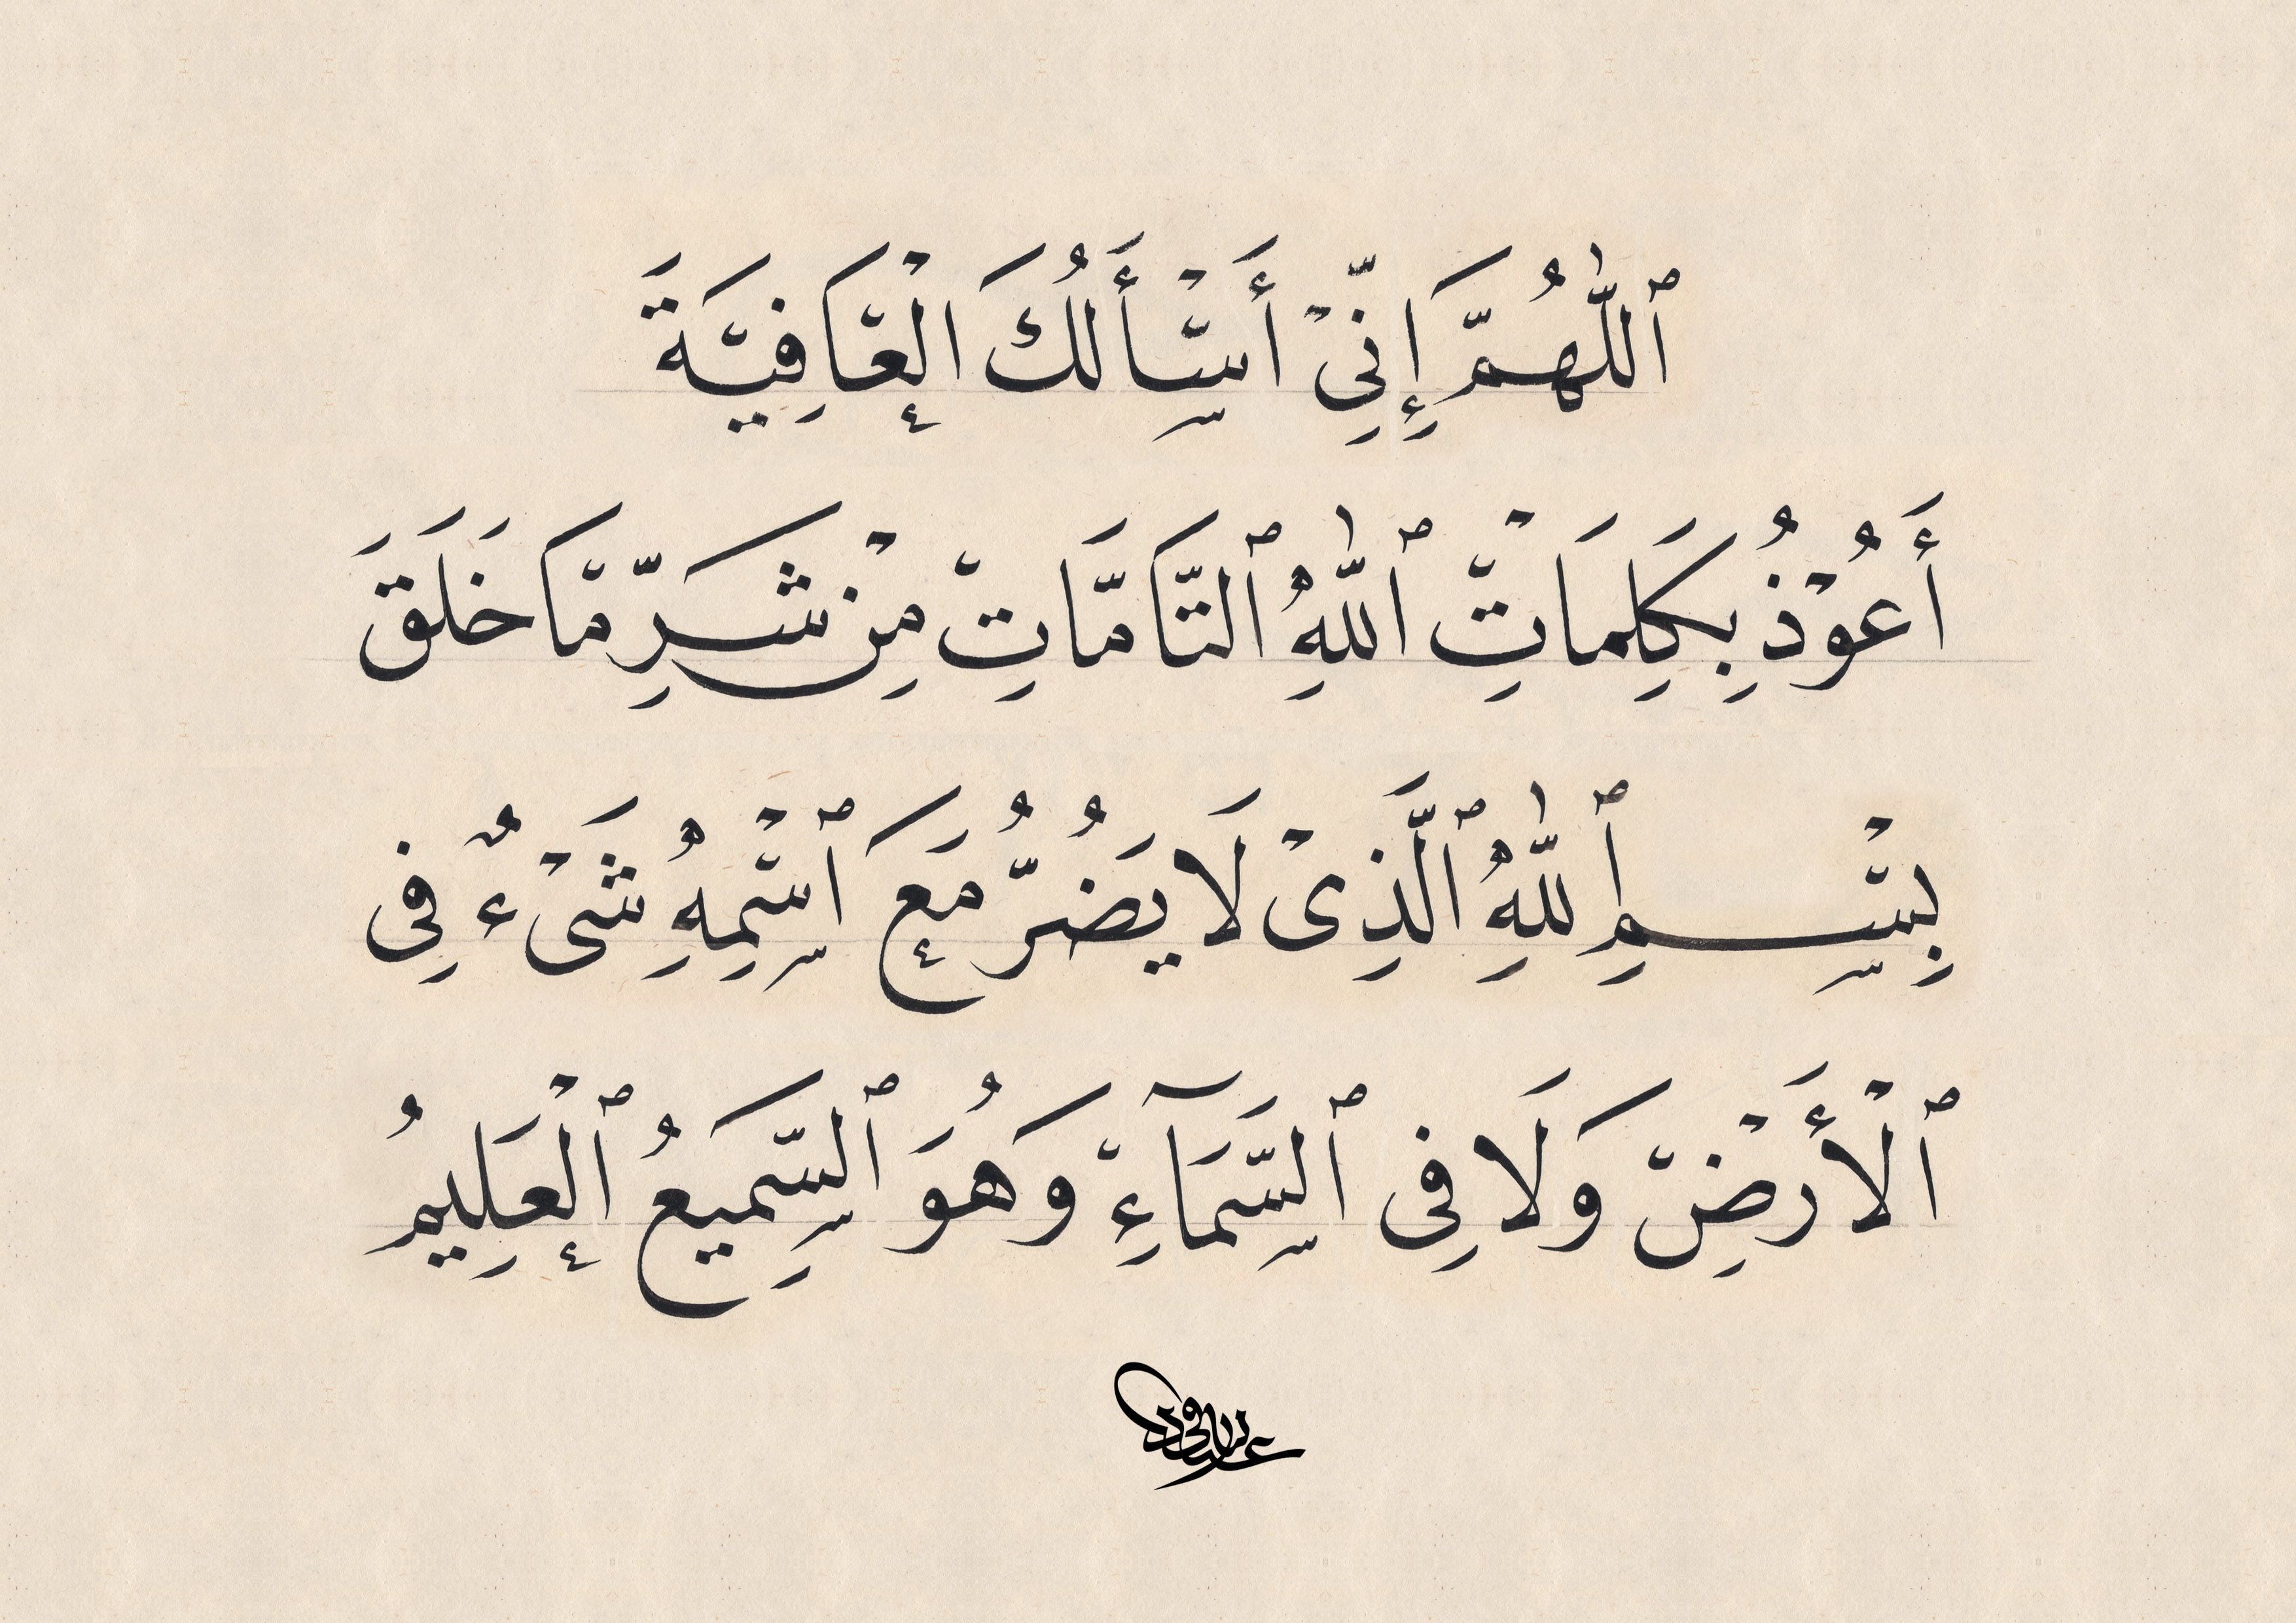 ٱللّٰهُمَّ إِنِّىْ أَسْأَلُكَ الْعَافِيَةَ
أَعُوْذُ بِكَلِمَاتِ ٱللّٰهِ ٱلتَّامَّاتِ مِنْ شَرِّ مَا خَلَقَ
بِسْمِ ٱللّٰهِ ٱلَّذِىْ لَا يَضُرُّ مَعَ ٱسْمِهِ شَىْءٌ فِى
ٱلْأَرْضِ وَلَا فِى ٱلسَّمَآءِ وَهُوَ ٱلسَّمِيعُ ٱلْعَلِيمُ